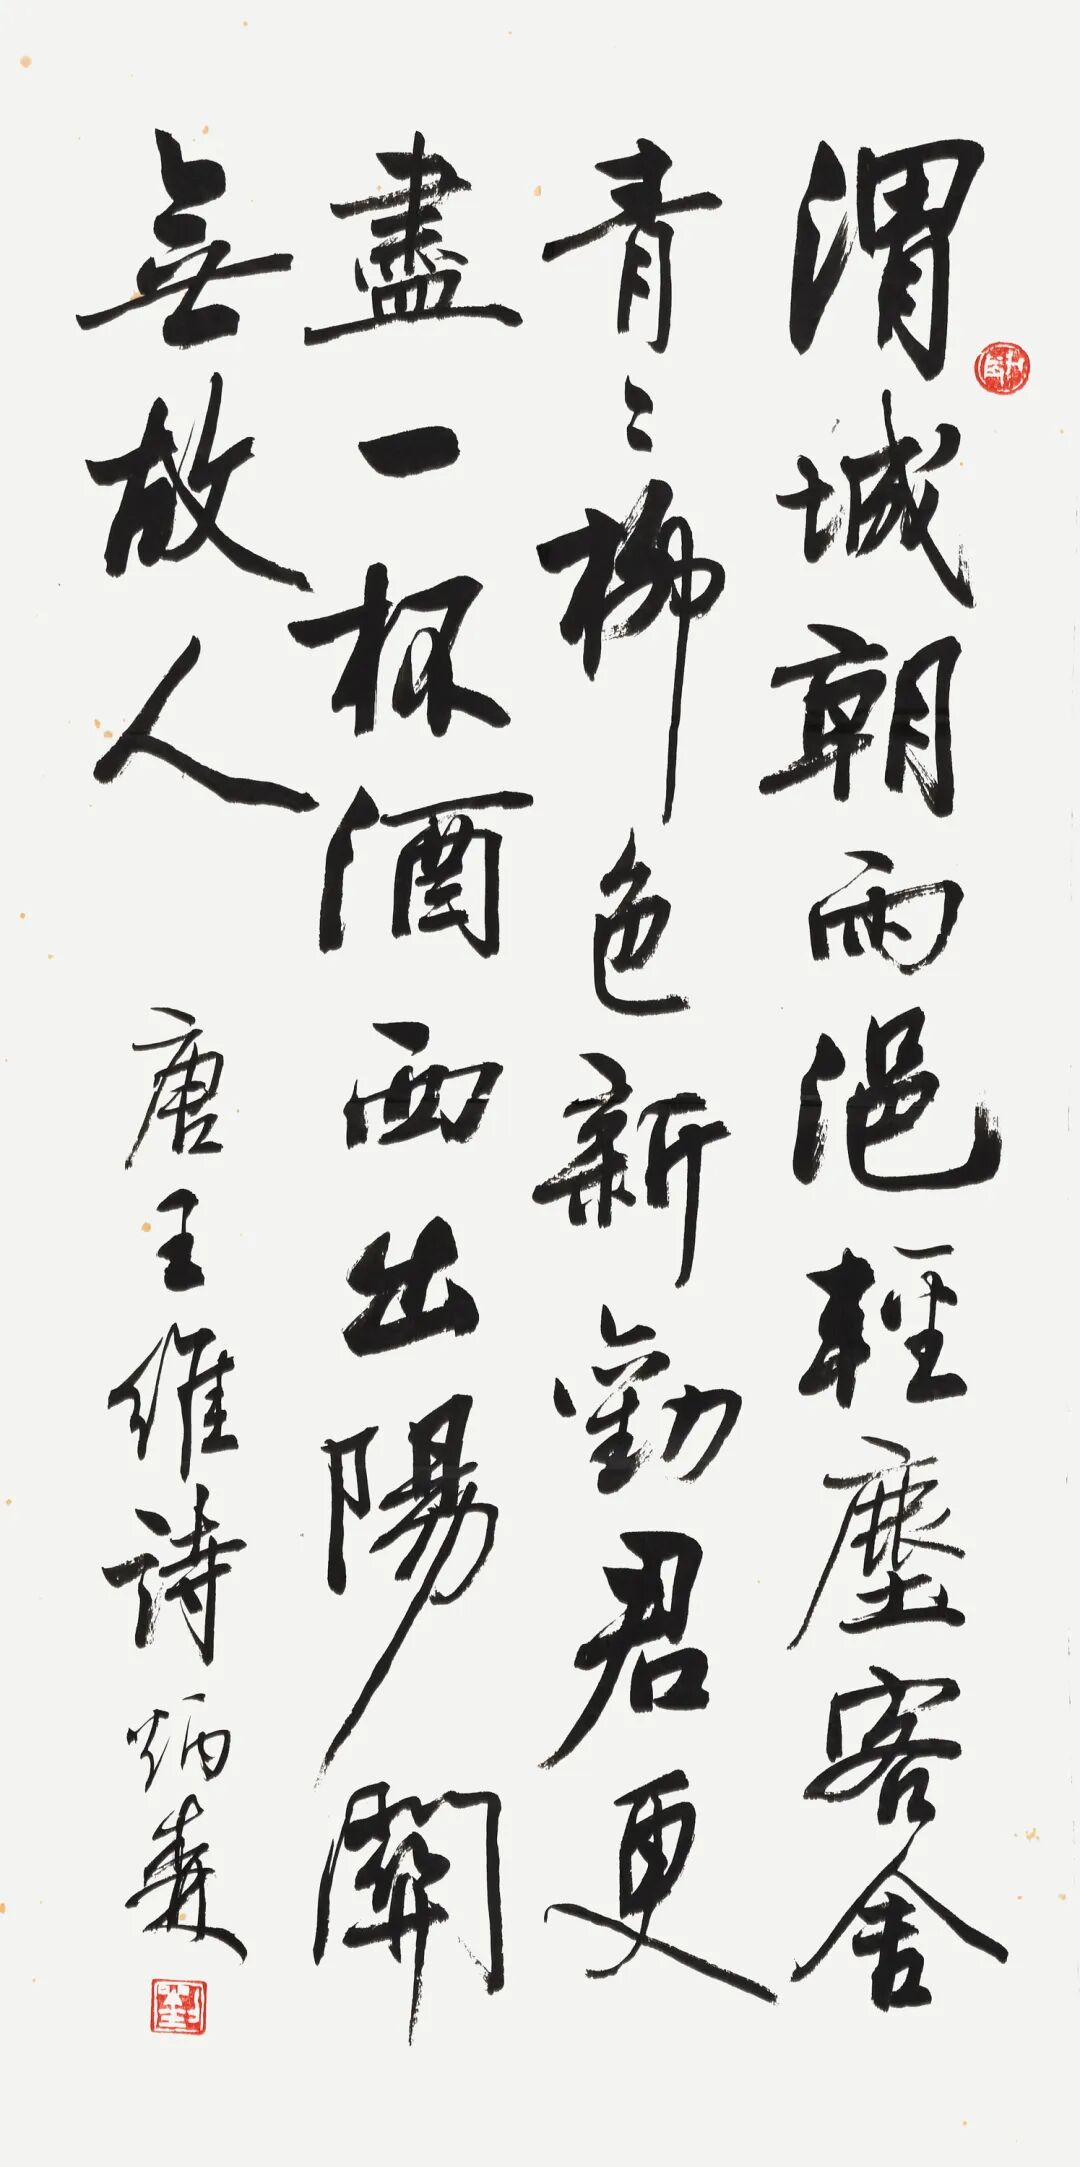 渭城朝雨浥輕塵客舍
青〻柳色新勸君更
盡一杯酒西出陽關
無故人
唐王維詩 炳森
劉